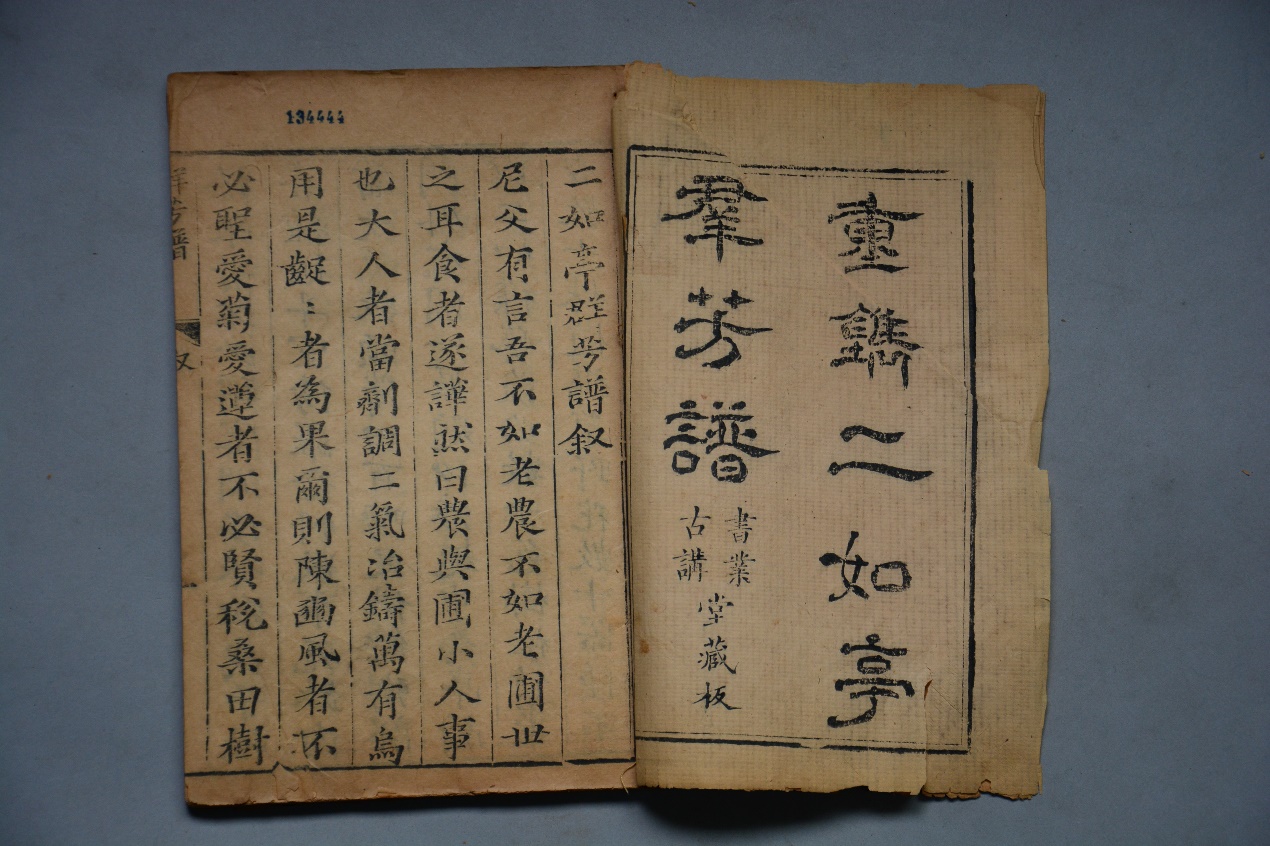 重鐫二如亭
羣芳譜
書業
古講
堂藏板
134444
二如亭群芳譜叙
尼父有言吾不如老農不如老圃世
之耳食者遂譁然曰農與圃小人事
也大人者當劑調二氣冶鑄萬有烏
用是齪〻者為果爾則陳豳風者不
必聖愛菊愛蓮者不必賢稅桑田樹
群芳譜
叙